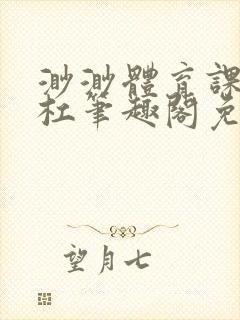 渺渺體育課
杜筆趣閣免
望月七